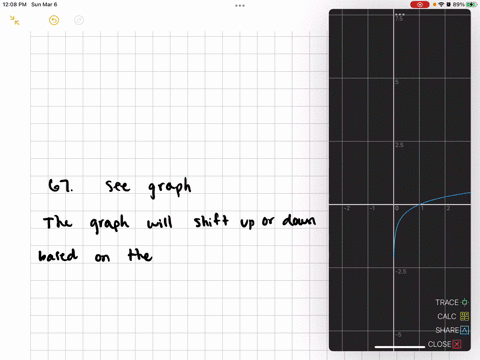 12:08 PM Sun Mar 6
89%
67. see graph
The graph will shift up or down
based on the
7.5
5
2.5
-2 -1 0 1 2
-2.5
-5
TRACE
CALC
SHARE
CLOSE